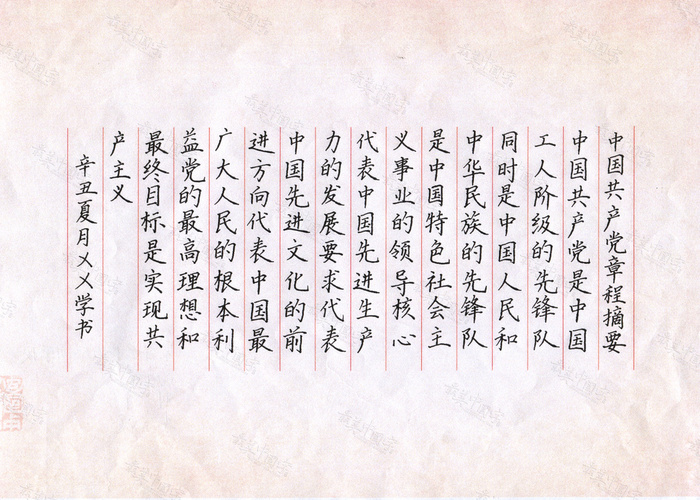 中国共产党章程摘要
中国共产党是中国
工人阶级的先锋队
同时是中国人民和
中华民族的先锋队
是中国特色社会主
义事业的领导核心
代表中国先进生产
力的发展要求代表
中国先进文化的前
进方向代表中国最
广大人民的根本利
益党的最高理想和
最终目标是实现共
产主义
辛丑夏月㐅㐅学书